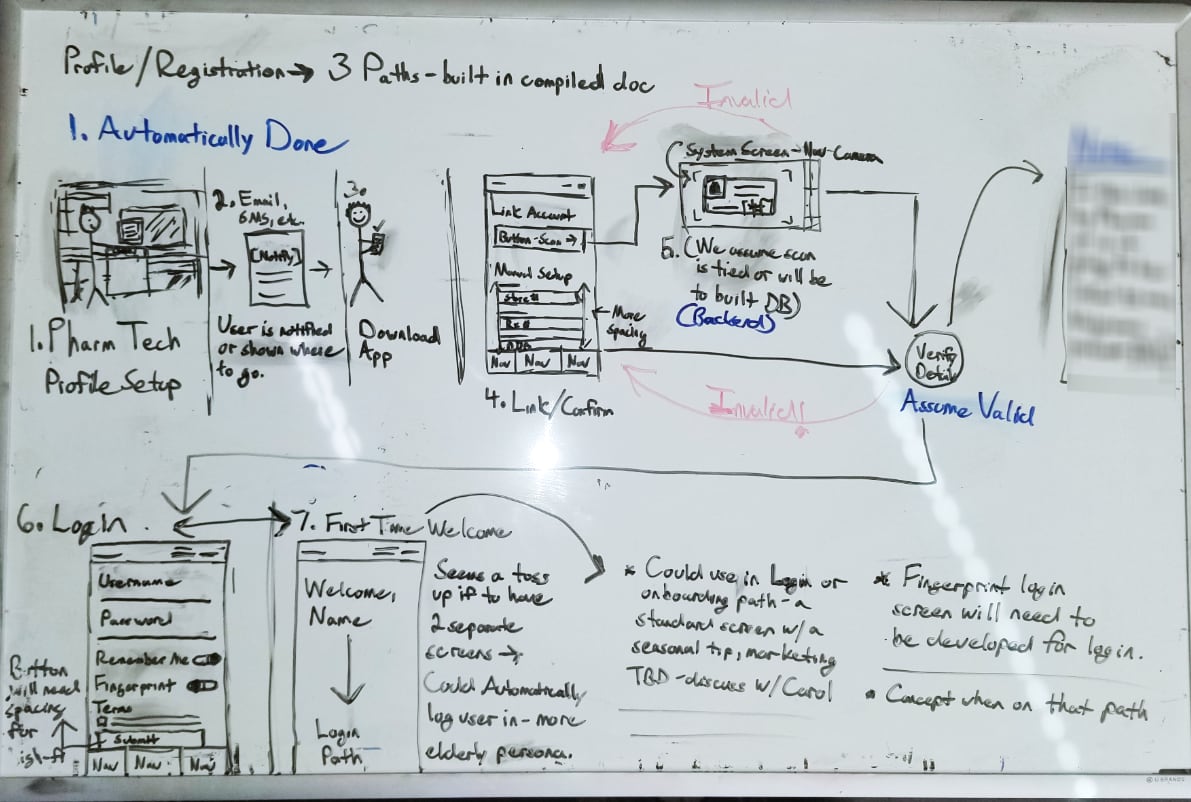 Profile/Registration → 3 Paths - built in compiled doc
1. Automatically Done
1. Pharm Tech
Profile Setup
2. Email,
SMS, etc.
[Notify]
User is notified
or shown where
to go.
3.
Download
App
Link Account
Button - Scan →
Manual Setup
Store #
Rx #
Nav Nav Nav
← More
spacing
4. Link/Confirm
Invalid
System Screen - Nav - Camera
5. (We assume scan
is tied or will be
to built DB)
(Backend)
Verify
Details
Assume Valid
Invalid!
6. Login
Username
Password
Remember Me
Fingerprint
Terms
Submit
Nav Nav Nav
Button
will need
spacing
for
7. First Time Welcome
Welcome,
Name
Login
Path
Seems a toss
up if to have
2 separate
screens →
Could Automatically
log user in - more
elderly persona.
* Could use in Login or
onboarding path - a
standard screen w/a
seasonal tip, marketing
TBD - discuss w/ Carol
* Fingerprint login
screen will need to
be developed for login.
• Concept when on that path
U BRANDS